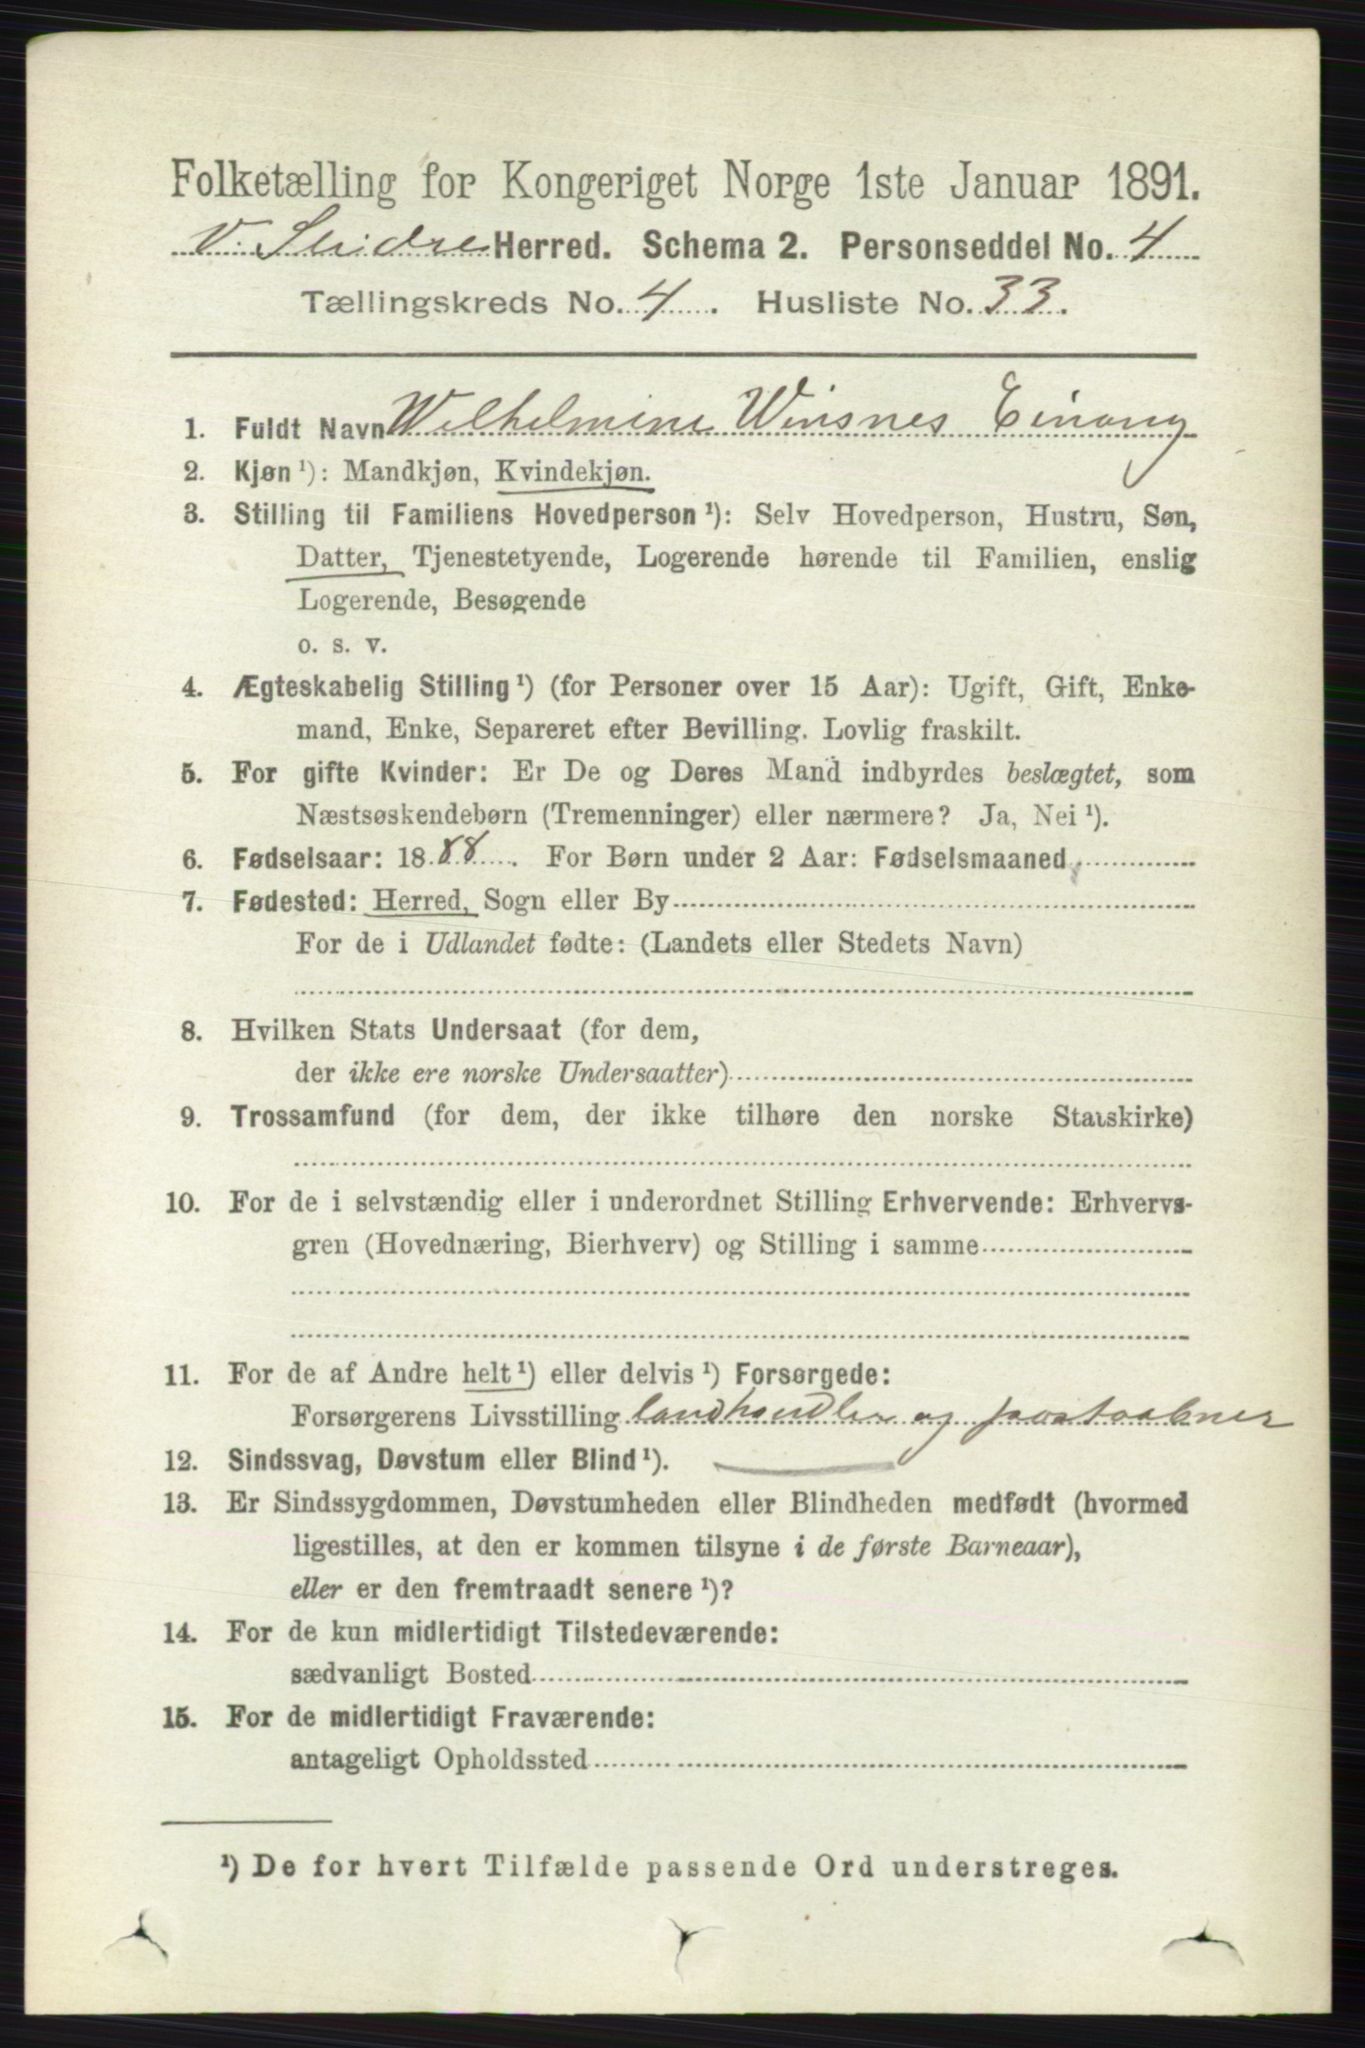 Folketælling for Kongeriget Norge 1ste Januar 1891.
V. Slidre Herred. Schema 2. Personseddel No. 4
Tællingskreds No. 4. Husliste No. 33.
1. Fuldt Navn Wilhelmine Winsnes Einang
2. Kjøn¹): Mandkjøn, Kvindekjøn.
3. Stilling til Familiens Hovedperson¹): Selv Hovedperson, Hustru, Søn,
Datter, Tjenestetyende, Logerende hørende til Familien, enslig
Logerende, Besøgende
o. s. v.
4. Ægteskabelig Stilling¹) (for Personer over 15 Aar): Ugift, Gift, Enke-
mand, Enke, Separeret efter Bevilling. Lovlig fraskilt.
5. For gifte Kvinder: Er De og Deres Mand indbyrdes beslægtet, som
Næstsøskendebørn (Tremenninger) eller nærmere? Ja, Nei¹).
6. Fødselsaar: 1888. For Børn under 2 Aar: Fødselsmaaned
7. Fødested: Herred, Sogn eller By
For de i Udlandet fødte: (Landets eller Stedets Navn)
8. Hvilken Stats Undersaat (for dem,
der ikke ere norske Undersaatter)
9. Trossamfund (for dem, der ikke tilhøre den norske Statskirke)
10. For de i selvstændig eller i underordnet Stilling Erhvervende: Erhvervs-
gren (Hovednæring, Bierhverv) og Stilling i samme
11. For de af Andre helt¹) eller delvis¹) Forsørgede:
Forsørgerens Livsstilling landhandler og postaabner
12. Sindssvag, Døvstum eller Blind¹).
13. Er Sindssygdommen, Døvstumheden eller Blindheden medfødt (hvormed
ligestilles, at den er kommen tilsyne i de første Barneaar),
eller er den fremtraadt senere¹)?
14. For de kun midlertidigt Tilstedeværende:
sædvanligt Bosted
15. For de midlertidigt Fraværende:
antageligt Opholdssted
¹) De for hvert Tilfælde passende Ord understreges.